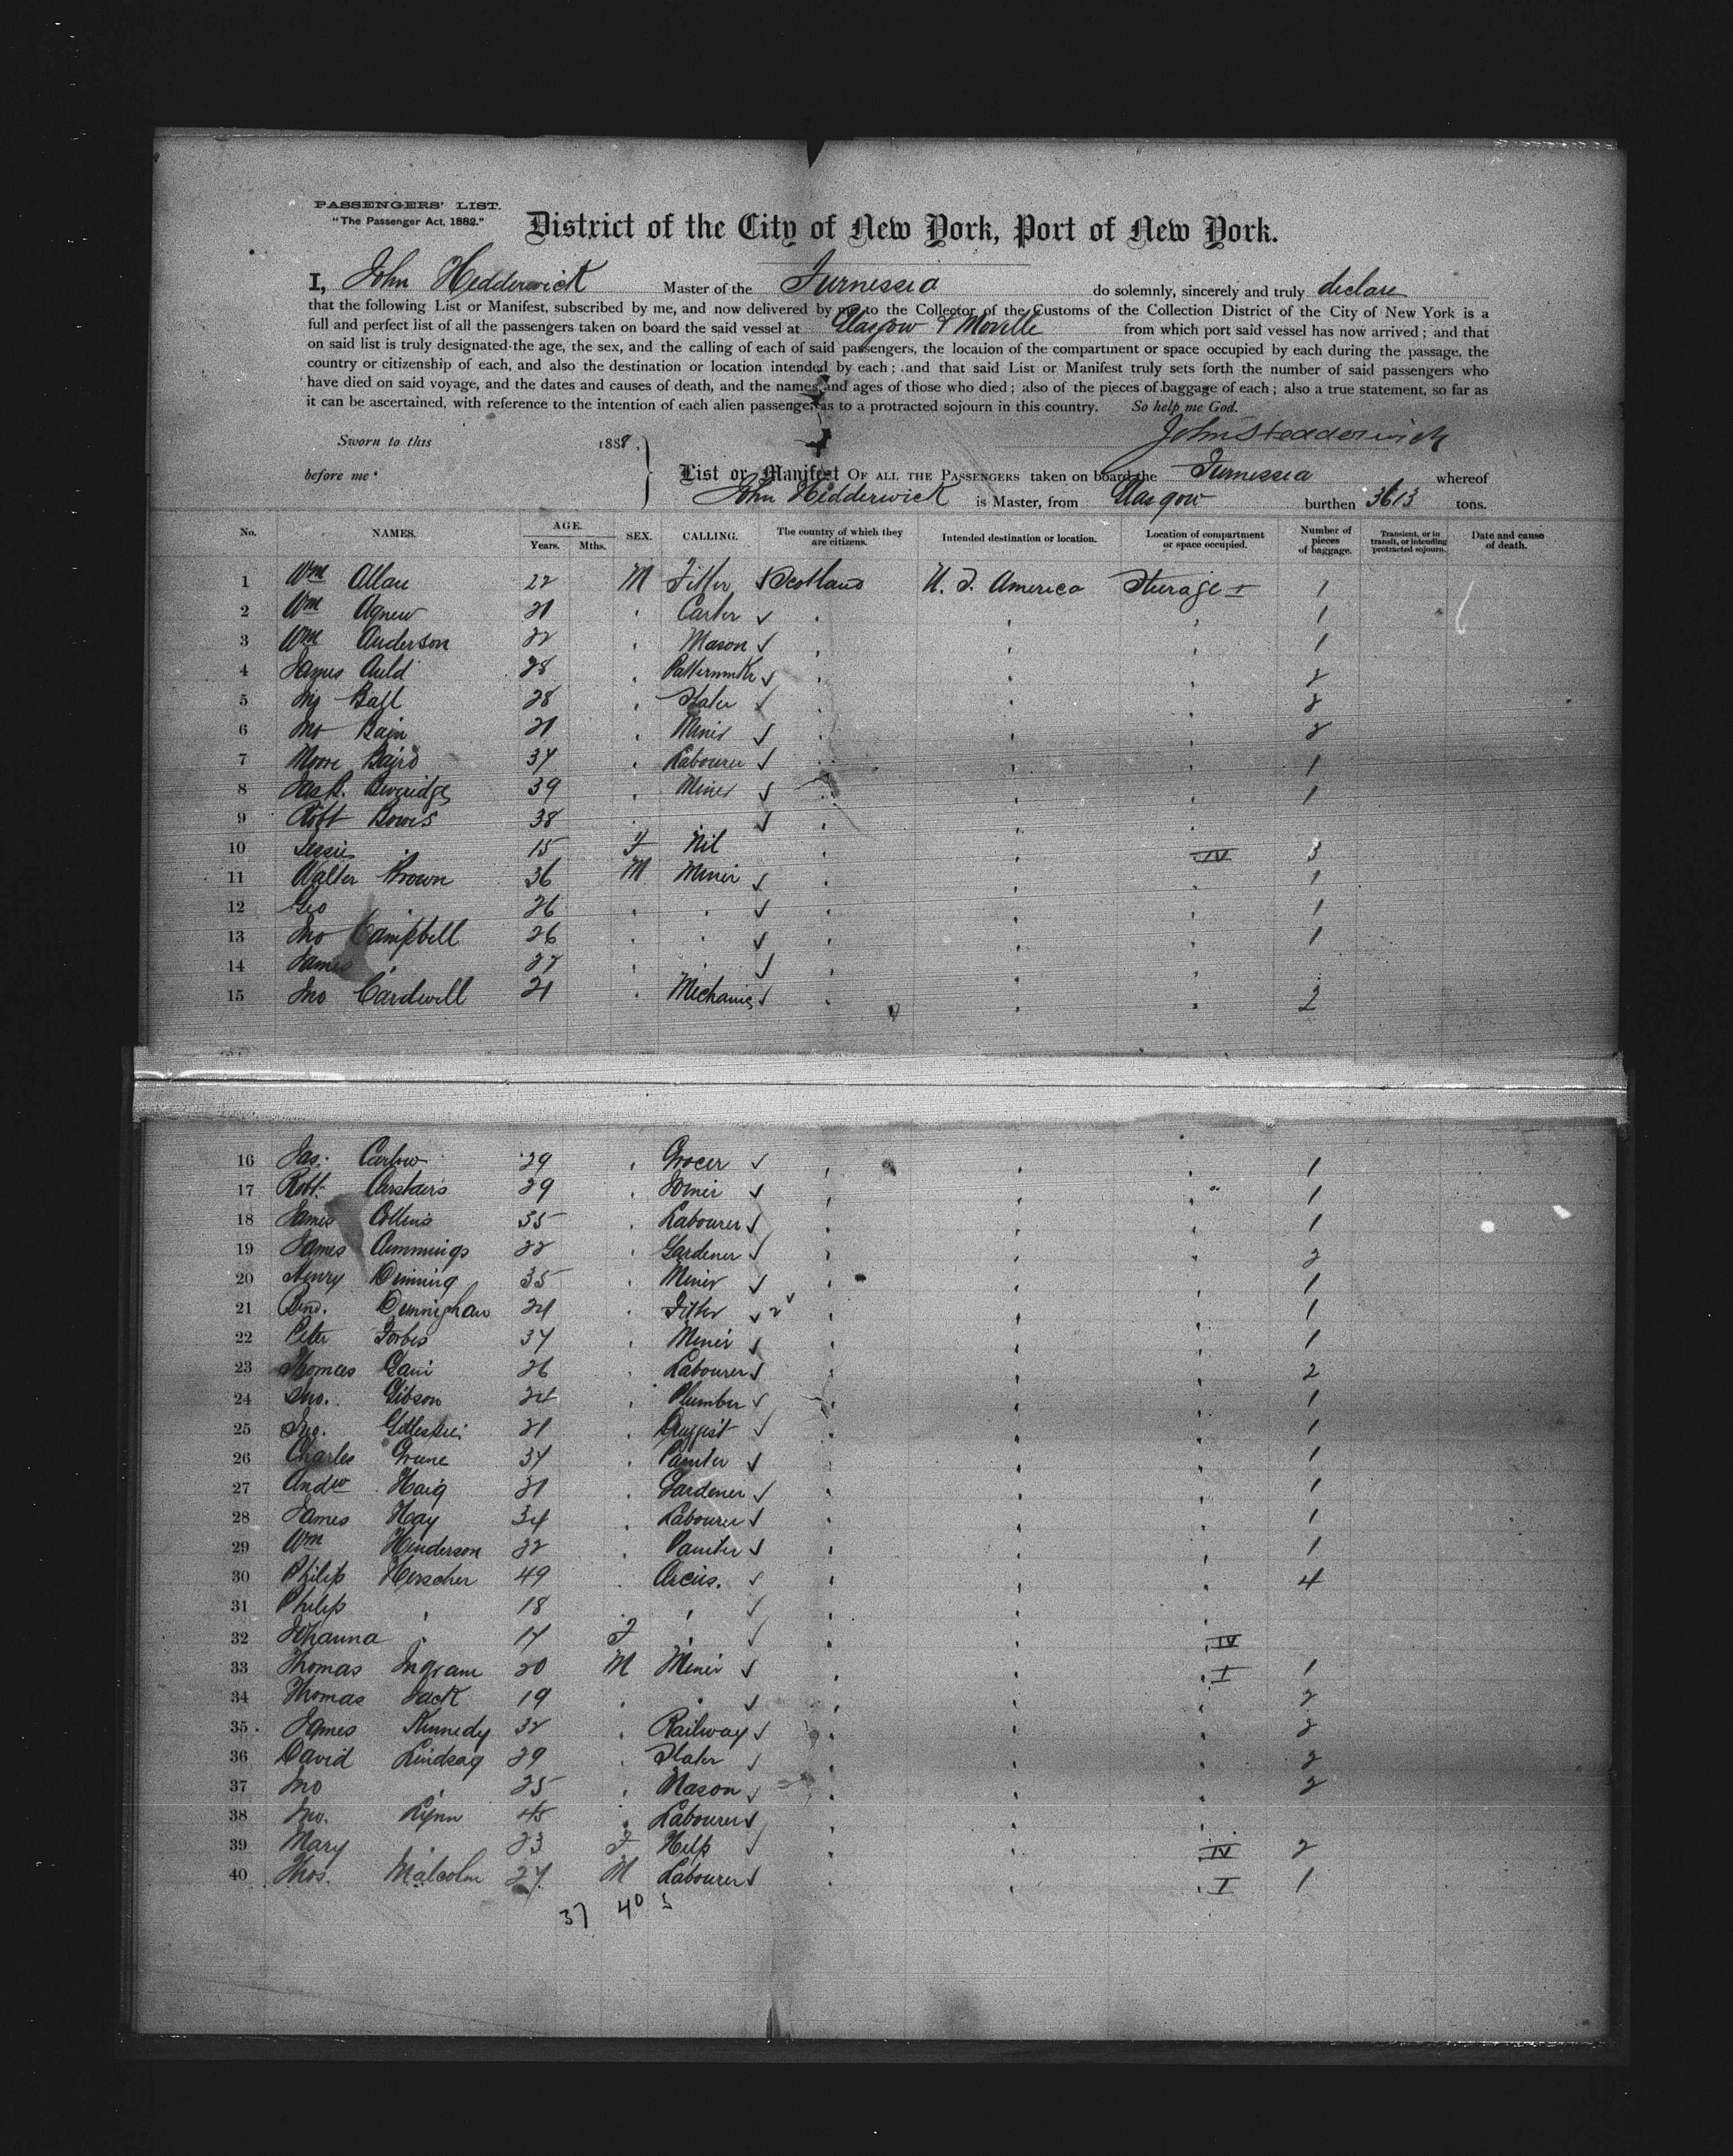 PASSENGERS' LIST.
"The Passenger Act, 1882."
District of the City of New York, Port of New York.
I, John Hedderwick Master of the Furnessia do solemnly, sincerely and truly declare
that the following List or Manifest, subscribed by me, and now delivered by me to the Collector of the Customs of the Collection District of the City of New York is a
full and perfect list of all the passengers taken on board the said vessel at Glasgow & Moville from which port said vessel has now arrived; and that
on said list is truly designated the age, the sex, and the calling of each of said passengers, the location of the compartment or space occupied by each during the passage, the
country or citizenship of each, and also the destination or location intended by each; and that said List or Manifest truly sets forth the number of said passengers who
have died on said voyage, and the dates and causes of death, and the names and ages of those who died; also of the pieces of baggage of each; also a true statement, so far as
it can be ascertained, with reference to the intention of each alien passenger as to a protracted sojourn in this country. So help me God.
John Hedderwick
Sworn to this 1888.
before me
List or Manifest OF ALL THE PASSENGERS taken on board the Furnessia whereof
John Hedderwick is Master, from Glasgow burthen 3613 tons.
No. NAMES. AGE. Years. Mths. SEX. CALLING. The country of which they are citizens. Intended destination or location. Location of compartment or space occupied. Number of pieces of baggage. Transient, or in transit, or intending protracted sojourn. Date and cause of death.
1 Wm Allan 22 M Fitter Scotland U. S. America Steerage I 1
2 Wm Agnew 21 Carter 1
3 Wm Anderson 22 Mason 1
4 James Auld 28 2
5 Ball 28 Slater 2
6 Jno Bain 21 Miner 2
7 Moore Baird 34 Labourer 1
8 Jas R. Beveridge 39 Miner 1
9 Robt Bowis 38
10 Jessie 15 F Nil IV 3
11 Walter Brown 36 M Miner 1
12 Geo 26 1
13 Jno Campbell 26 1
14 James
15 Jno Cardwell 21 Mechanic 2
16 Jas. Carlow 29 Grocer 1
17 Robt Carstairs 29 Joiner 1
18 James Collins 35 Labourer 1
19 James Cummings 22 Gardener 2
20 Henry Dinning 35 Miner 1
21 Fitter 1
22 Peter Forbes 34 Miner 1
23 Thomas 26 Labourer 2
24 Jno. Gibson 24 Plumber 1
25 Jno. Gillespie 21 Druggist 1
26 Charles 34 Painter 1
27 Andw Haig 21 Gardener 1
28 James Hay 34 Labourer 1
29 Wm Henderson 32 Painter 1
30 Philip Herscher 49 Circus. 4
31 Philip 18
32 Johanna 17 F IV
33 Thomas Ingram 20 M Miner I 1
34 Thomas Jack 19 2
35 James Kennedy 32 Railway 2
36 David Lindsay 29 Slater 2
37 Jno 25 Mason 2
38 Jno. Lynn 45 Labourer
39 Mary 23 F Help IV 2
40 Thos. Malcolm 27 M Labourer I 1
37 40